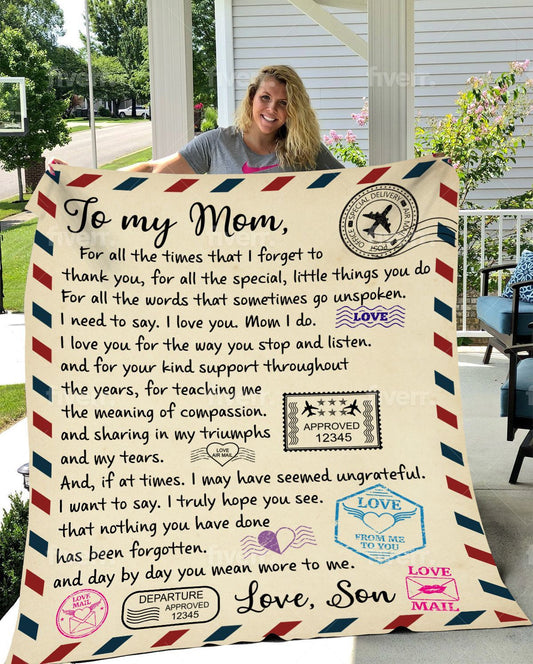 To my Mom,
For all the times that I forget to
thank you, for all the special, little things you do
For all the words that sometimes go unspoken.
I need to say. I love you. Mom I do.
LOVE
I love you for the way you stop and listen.
and for your kind support throughout
the years, for teaching me
the meaning of compassion.
and sharing in my triumphs
and my tears.
And, if at times. I may have seemed ungrateful.
I want to say. I truly hope you see.
that nothing you have done
has been forgotten.
and day by day you mean more to me.
Love, Son
SPECIAL DELIVERY
AIR MAIL
1504
APPROVED
12345
LOVE
AIR MAIL
LOVE
FROM ME
TO YOU
LOVE MAIL
DEPARTURE
APPROVED
12345
LOVE
MAIL
fiverr.